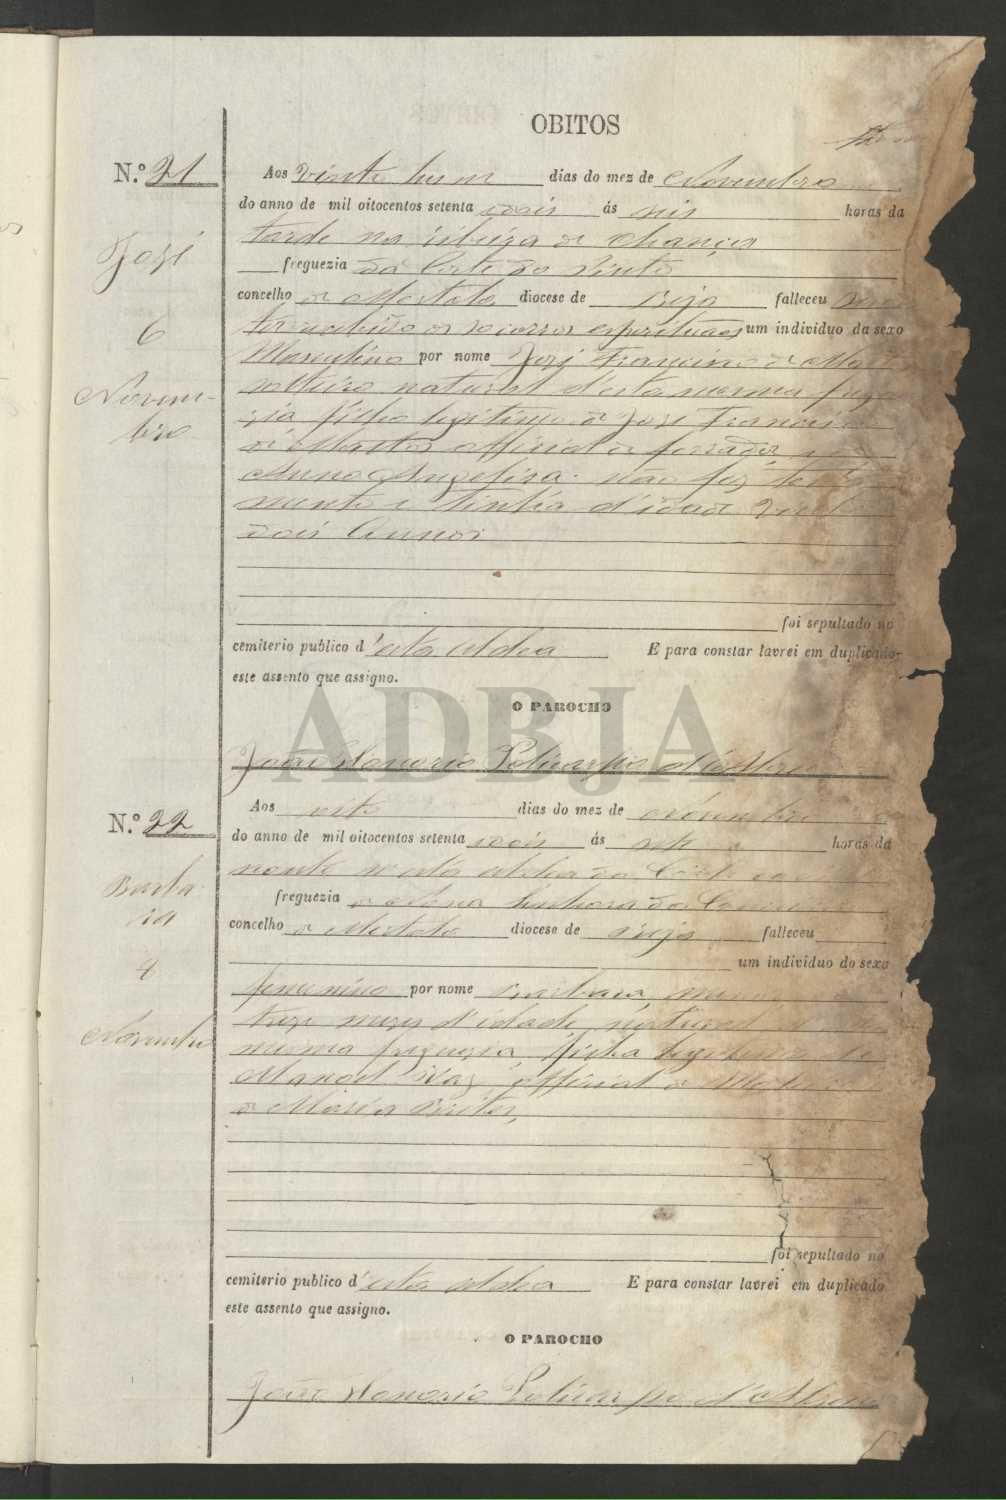 OBITOS
N.º 21
José
6
Novem-
bro
Aos vinte hum dias do mez de Novembro
do anno de mil oitocentos setenta e dois ás seis horas da
tarde na ribeira de Chança
freguezia da Corte do Pinto
concelho de Mertola diocese de Beja falleceu sem
ter recebido os socorros espirituaes um individuo da sexo
Masculino por nome José Francisco de
solteiro natural d'esta mesma fregue
zia filho legitimo de José Francisco
de Mattos official de ferrador e de
Anna Angelica. não fez testa
mento e tinha d'idade vinte
dois Annos
foi sepultado no
cemiterio publico d'esta Aldea E para constar lavrei em duplicado
este assento que assigno.
O PAROCHO
João Honorio Policarpo d'
ADBJA
N.º 22
Barba
ra
4
Novembro
Aos oito dias do mez de Novembro
do anno de mil oitocentos setenta e dois ás sete horas da
noute n'esta aldea da Corte do
freguezia de Nossa Senhora da
concelho de Mertola diocese de Beja falleceu
um individuo do sexo
femenino por nome Barbara, menor de
treze mezes d'idade, natural
mesma freguezia filha legitima de
Manoel Vaz, official de
e Maria Brites,
foi sepultado no
cemiterio publico d'esta Aldea E para constar lavrei em duplicado
este assento que assigno.
O PAROCHO
João Honorio Policarpo d'